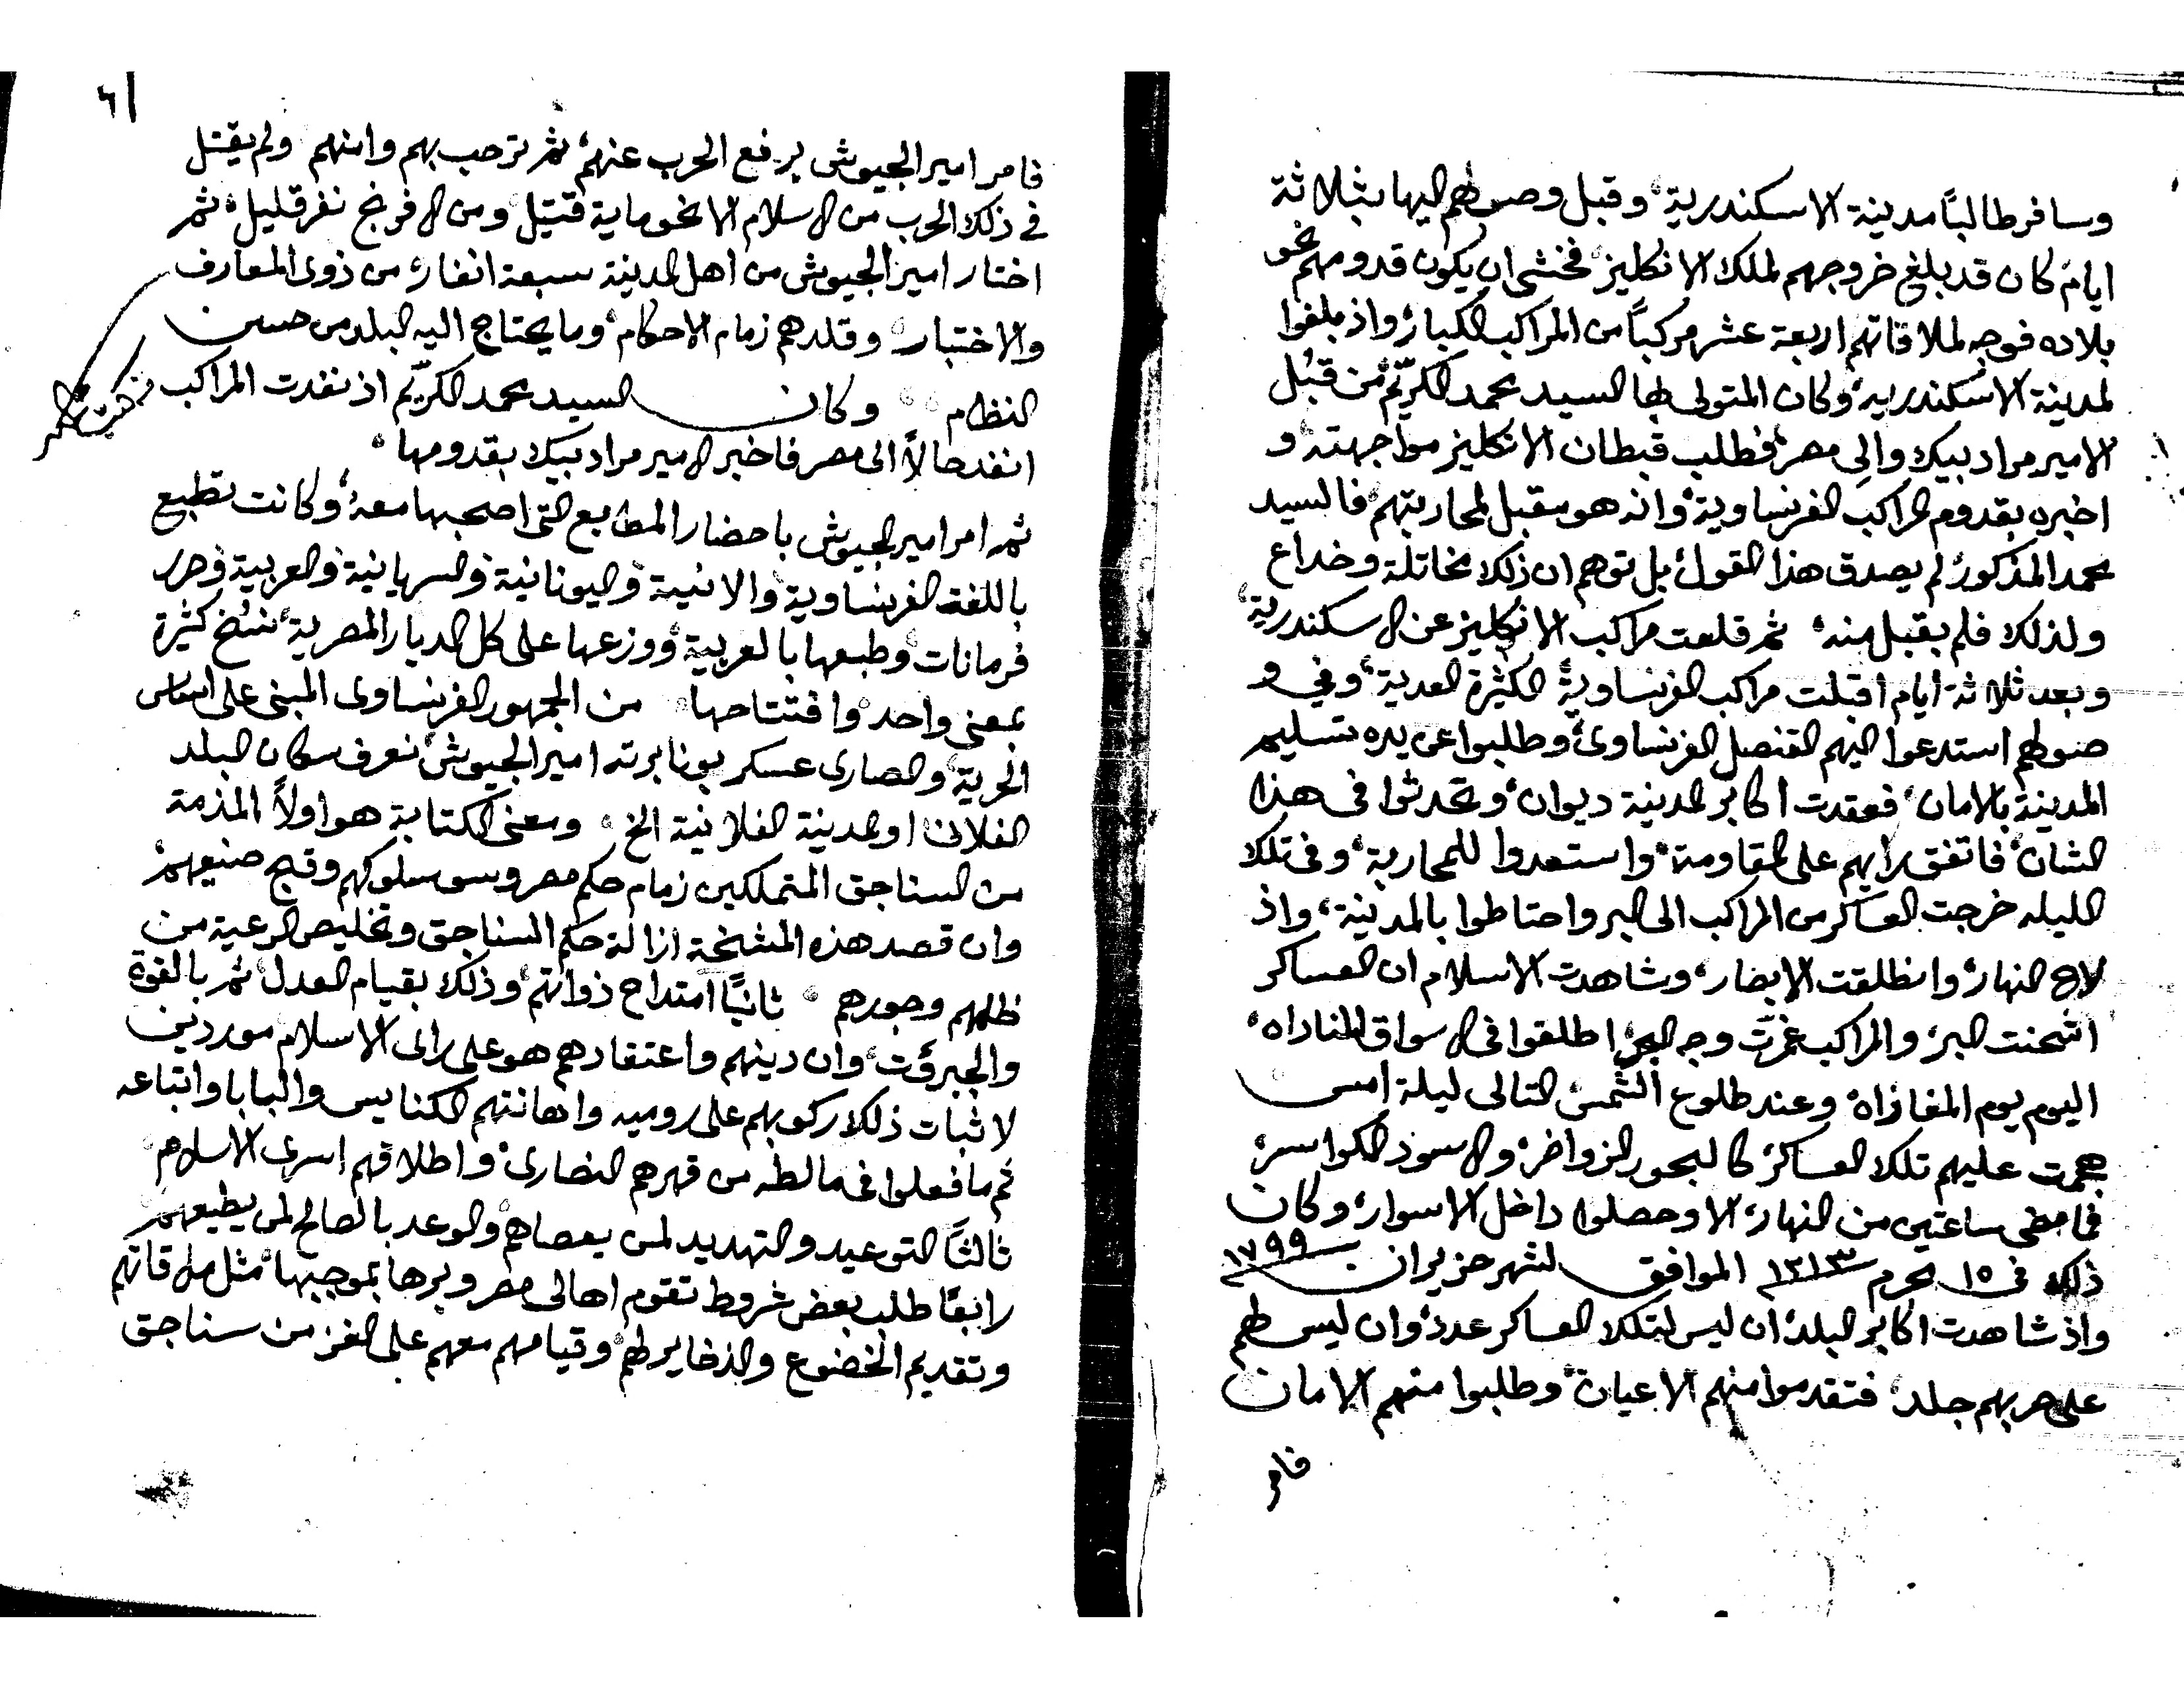 وسافر طالباً مدينة الاسكندرية، وقبل وصولهم اليها بثلاثة
ايام كان قد بلغ خروجهم لملك الانكليز، فخشى ان يكون قدومهم نحو
بلاده فوجه لملاقاتهم اربعة عشر مركباً من المراكب الكبار، واذ بلغوا
لمدينة الاسكندريه، وكان المتولى لها السيد محمد الكريّم من قبل
الامير مراد بيك والى مصر، فطلب قبطان الانكليز مواجهته، و
اخبره بقدوم المراكب الفرنساوية، وانه هو مقبل لمحاربتهم، فالسيد
محمد المذكور لم يصدق هذا القول، بل توهم ان ذلك مخاتلة وخداع
ولذلك فلم يقبل منه، ثم قلعت مراكب الانكليز عن الاسكندرية،
وبعد ثلاثة ايام اقبلت مراكب الفرنساوية، الكثيرة العدية، وفي و
صولهم استدعوا اليهم القنصل الفرنساوى، وطلبوا عن يده تسليم
المدينة بالامان، فعقدت اكابر المدينة ديوان، وتحدثوا فى هذا
الشان، فاتفق رايهم على المقاومة، واستعدوا للمحاربة، وفى تلك
الليله خرجت العساكر من المراكب الى البر واحتاطوا بالمدينة، واذ
لاح النهار، وانطلقت الابصار، وشاهدت الاسلام ان العساكر
اشحنت البر، والمراكب غمرت وجه البحر، اطلقوا فى الاسواق المناداه،
اليوم يوم المغازاه، وعند طلوع الشمس التالى ليلة امس
هجمت عليهم تلك العساكر، كالبحور الزواخر، والاسود الكواسر،
فما مضى ساعتين من النهار، الا وحصلوا داخل الاسوار، وكان
ذلك فى ١٥ محرم ١٢١٣ الموافق لشهر حزيران ١٧٩٩
واذ شاهدت اكابر البلد، ان ليس لتلك العساكر عدد، وان ليس لهم
على حربهم جلد، فتقدموا منهم الاعيان، وطلبوا منهم الامان
فامر
٦
فامر امير الجيوش برفع الحرب عنهم، ثم ترحب بهم وامنهم ولم يقتل
فى ذلك الحرب من الاسلام الا نحو ماية قتيل، ومن الافرنج نفر قليل، ثم
اختار امير الجيوش من اهل المدينة سبعة انفار، من ذوى المعارف
والاختبار، وقلدهم زمام الاحكام، وما يحتاج اليه البلد من حسن
النظام، وكان السيد محمد الكريّم اذ نفدت المراكب
انفد حالاً الى مصر فاخبر الامير مراد بيك بقدومها،
ثم امر امير الجيوش باحضار المطابع التى اصحبها معه، وكانت تطبع
باللغة الفرنساوية، والاتنية، واليونانية، والسريانية، والعربية، وحرر
فرمانات، وطبعها بالعربية، ووزعها على كل الديار المصرية، نسخ كثيرة
بمعنى واحد، وافتتاحها، من الجمهور الفرنساوى المبنى على اساس
الحرية، والصارى عسكر بونابرته امير الجيوش، نعرف سكان البلد
الفلان، او المدينة الفلانية الخ، ومعنى الكتابة هو اولاً المذمة
من السناجق المتملكين زمام حكم مصر وسو سلوكهم وقبح صنيعهم،
وان قصد هذه المشخة ازالة حكم السناجق وتخليص الرعية من
ظلمهم وجورهم، ثانياً امتداح ذواتهم، وذلك بقيام العدل، ثم بالقوة
والجبروت، وان دينهم واعتقادهم هو على راى الاسلام موردين
لاثبات ذلك ركوبهم على روميه واهانتهم الكنايس والبابا واتباعه
ثم ما فعلوا فى مالطه من قهرهم النصارى، واطلاقهم اسرى الاسلام
ثالثاً التوعيد والتهديد لمن يعصاهم، والوعد بالصالح لمن يطيعهم
رابعًا طلب بعض شروط تقوم اهالى مصر وبرها بموجبها، مثل ملاقاتهم
وتقديم الخضوع والدخاير لهم، وقيامهم معهم على الغز من سناجق